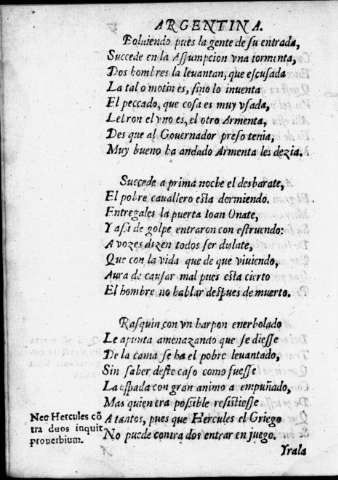 ARGENTINA.
Bolviendo pues la gente de su entrada,
Succede en la Assumpcion vna tormenta,
Dos hombres la levantan, que escusada
La tal o motin es, sino lo inuenta
El peccado, que cosa es muy vsada,
Letron el vno es, el otro Armenta,
Des que al Gouernador preso tenia,
Muy bueno ha andado Armenta les dezia.
Succede a prima noche el desbarate,
El pobre cauallero esta dormiendo.
Entregales la puerta Ioan Oñate,
Y assi de golpe entraron con estruendo:
A vozes dizen todos ser dislate,
Que con la vida que de que viuiendo,
Aura de causar mal pues esta cierto
El hombre no hablar despues de muerto.
Rasquin con vn harpon enerbolado
Le apunta amenazando que se diesse
De la cama se ha el pobre levantado,
Sin saber deste caso como fuesse
La espada con gran animo a empuñado,
Mas quien tra possible resistiesse
A tantos, pues que Hercules el Griego
No puede contra dos entrar en juego.
Neo Hercules cõ
tra duos inquit
prouerbium.
Yrala